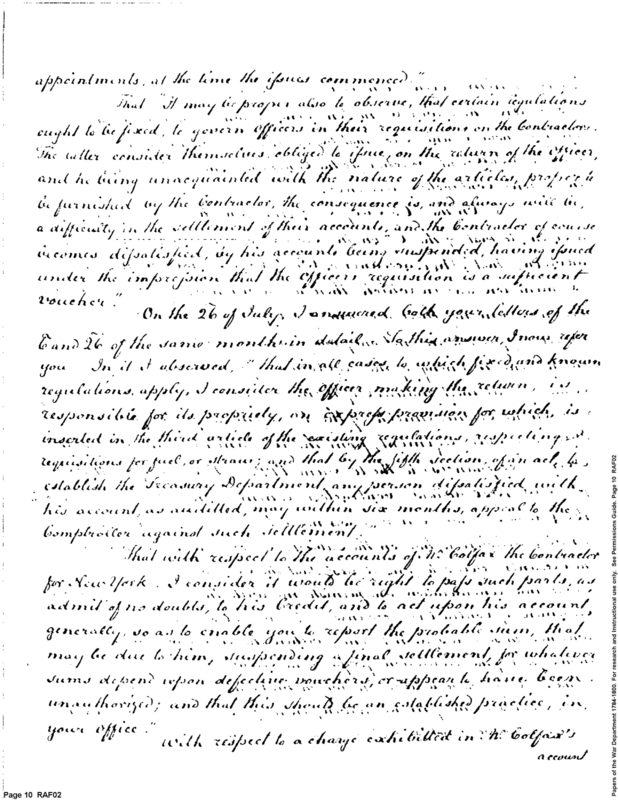 appointments, at the time the issues commenced."
That "It may be proper also to observe, that certain regulations
ought to be fixed, to govern Officers in their requisitions on the Contractors.
The latter consider themselves obliged to issue, on the return of the Officer,
and he being unacquainted with the nature of the articles, proper to
be furnished by the Contractor, the consequence is, and always will be,
a difficulty in the settlement of their accounts, and the Contractor of course
becomes dissatisfied, by his accounts being suspended, having issued
under the impression that the Officers requisition is a sufficient
voucher."
On the 26 of July, I answered both your letters of the
6 and 26 of the same month in detail. To this answer, I now refer
you In it I observed, "that in all cases to which fixed and known
regulations apply, I consider the officer making the return, is
responsible for its propriety, an express provision for which, is
inserted in the third article of the existing regulations, respecting
requisitions for fuel, or straw; and that by the fifth section, of an act, to
establish the Treasury Department, any person dissatisfied with
his account, as auditted, may within six months, appeal to the
Comptroller against such settlement."
That with respect to the accounts of Mr. Colfax the Contractor
for New York. I consider it would be right to pass such parts, as
admit of no doubts, to his Credit, and to act upon his account
generally, so as to enable you to report the probable sum, that
may be due to him, suspending a final settlement, for whatever
sums depend upon defective vouchers, or appear to have been
unauthorized; and that this should be an established practice, in
your office."
With respect to a charge exhibitted in Mr. Colfax's
account
Page 10 RAF02
Papers of the War Department 1784-1803. For research and instructional use only. See Permissions Guide. Page 10 RAF02